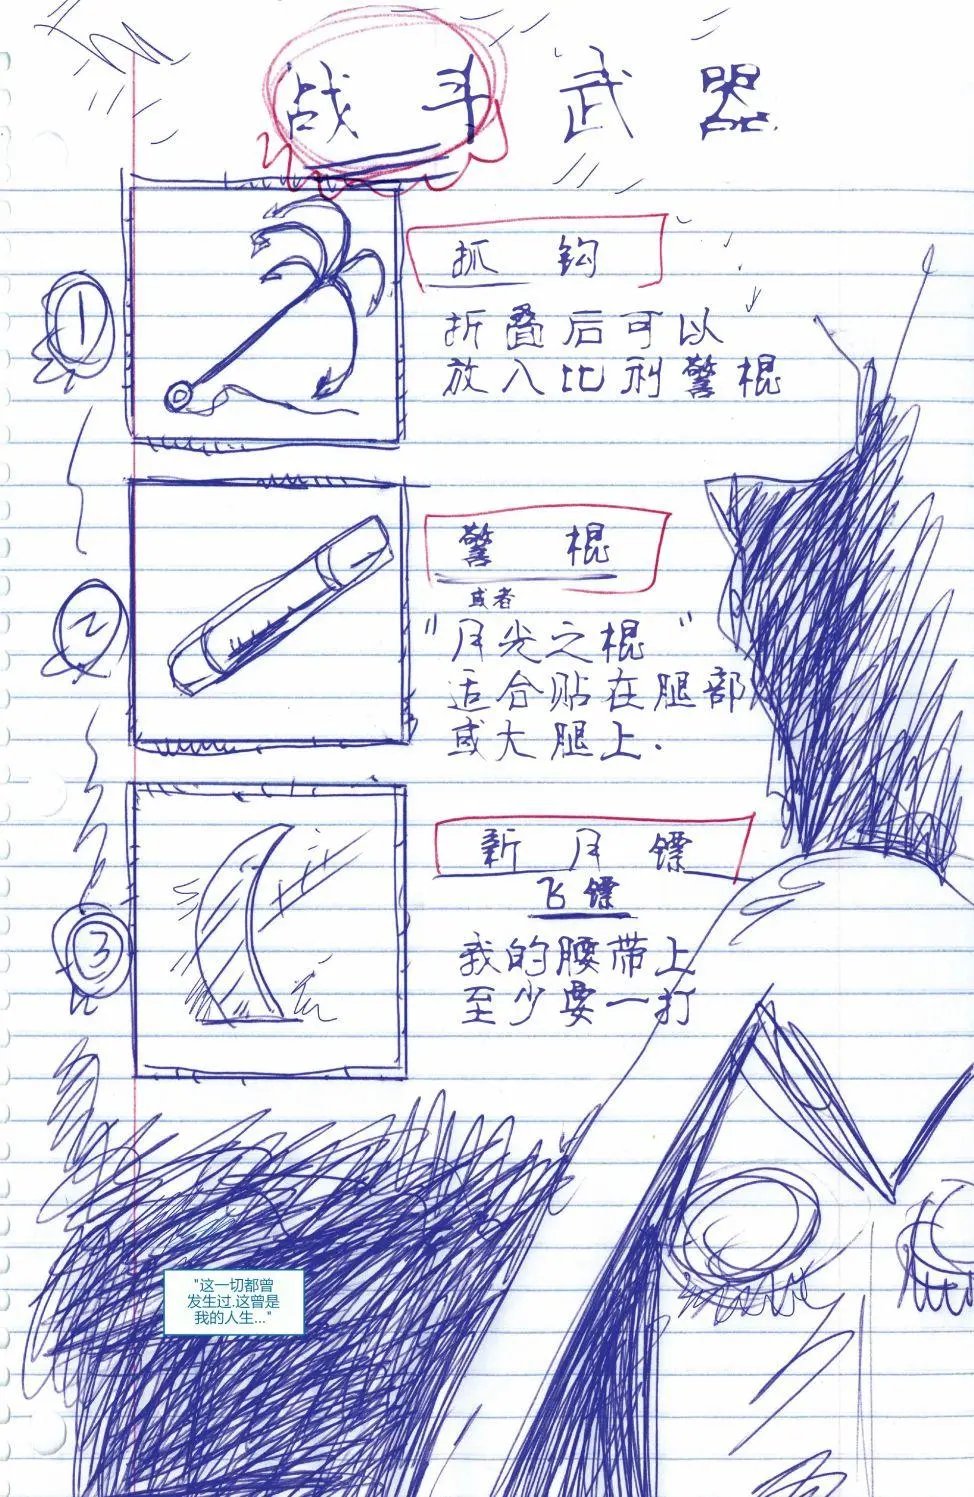 战斗武器
1
抓钩
折叠后可以
放入比利警棍
2
警棍
或者
"月光之棍"
适合贴在腿部
或大腿上.
3
新月镖
飞镖
我的腰带上
至少要一打
"这一切都曾
发生过.这曾是
我的人生..."